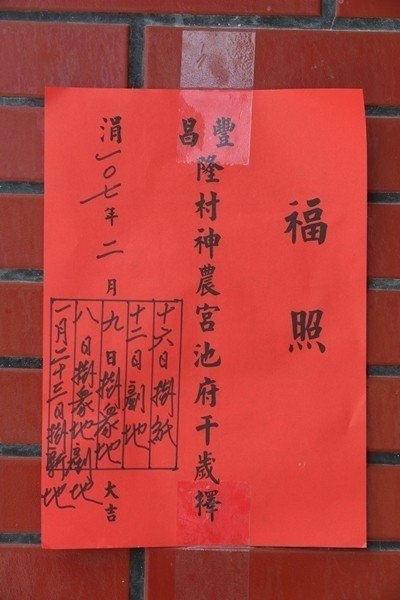 福照
豐昌隆村神農宮池府千歲擇
十六日掛紙
十二日
涓一0七年二月九日掛 地 大吉
八日掛 地
一月二十三日掛新地